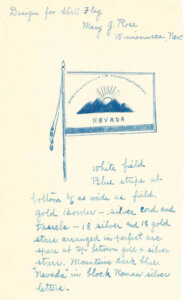 Design for State Flag
Mary G. Rose
Winnemucca, Nev.
NEVADA
White field
Blue stripe at
bottom 1/5 as wide as field.
Gold Border – silver cord and
Tassels – 18 silver and 18 gold
stars arranged in perfect arc
space at top between gold & silver
stars. Mountains dark blue.
"Nevada" in block Roman silver
letters.